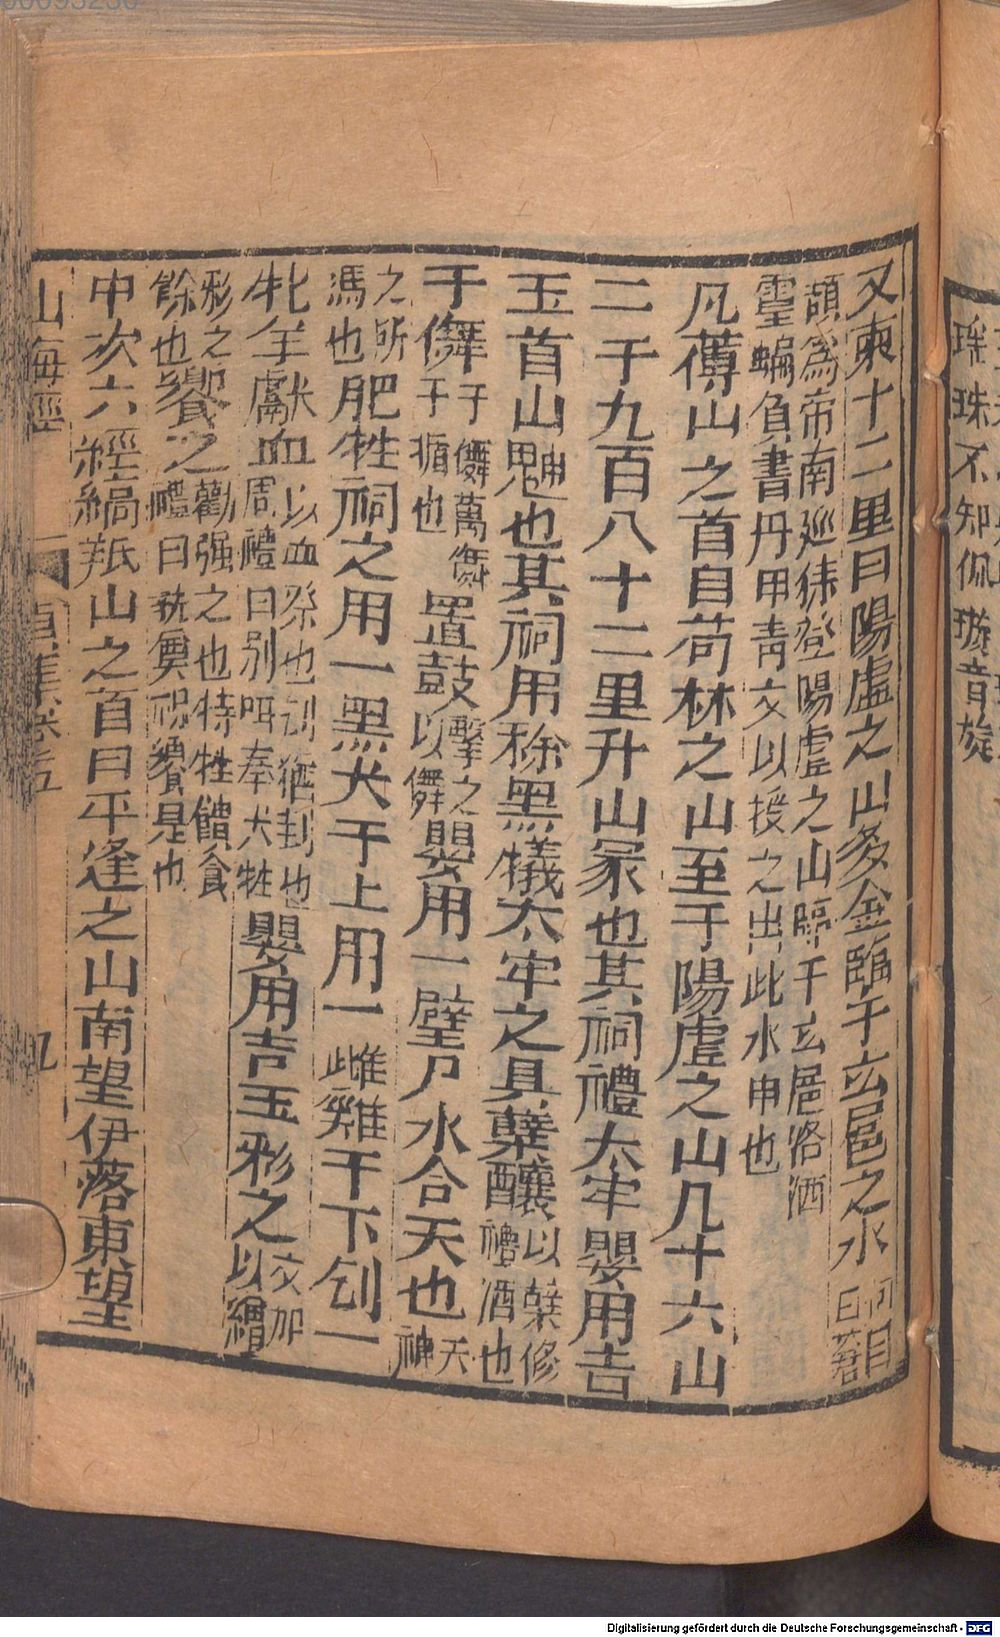 又東十二里曰陽虛之山多金臨于玄扈之水河圖曰蒼
頡爲帝南巡狩登陽虛之山臨于玄扈洛汭
靈龜負書丹甲青文以授之出此水中也
凡薄山之首自苟林之山至于陽虛之山凡十六山
二千九百八十二里升山冢也其祠禮太牢嬰用吉
玉首山䰠也其祠用稌黑犧太牢之具櫱釀以櫱修醴酒也
干儛干儛萬儛干楯也置鼓擊之以儛嬰用一璧尸水合天也天神
之所馮也肥牲祠之用一黑犬于上用一雌雞于下刉一
牝羊獻血以血祭也刉猶刲也周禮曰刉咡奉犬牲嬰用吉玉彩之又加以繒
彩之餘也饗之勸强之也特牲饋食禮曰執奠祝饗是也
中次六經縞羝山之首曰平逢之山南望伊落東望
山海經 卷五 九
珠不知佩璇音旋
Digitalisierung gefördert durch die Deutsche Forschungsgemeinschaft - DFG